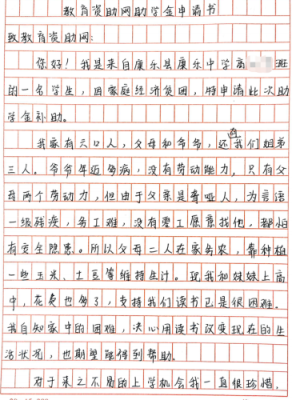 教育资助网助学金申请书
致教育资助网:
您好!我是来自康乐县康乐中学高 班
的一名学生,因家庭经济贫困,特申请此次助
学金补助。
我家有六口人,父母和爷爷,还有我们姐弟
三人。爷爷年迈多病,没有劳动能力。只有父
母两个劳动力,但由于父亲是聋哑人,为言语
一级残疾,务工难,没有零工愿意找他,都怕
有安全隐患。所以父母二人在家务农,靠种植
一些玉米、土豆等维持生计。现我和妹妹上高
中,花费也多了,支持我们读书已是很困难。
我自知家中的困难,决心用读书改变现在的生
活状况,也期望能得到帮助。
对于来之不易的上学机会我一直很珍惜,